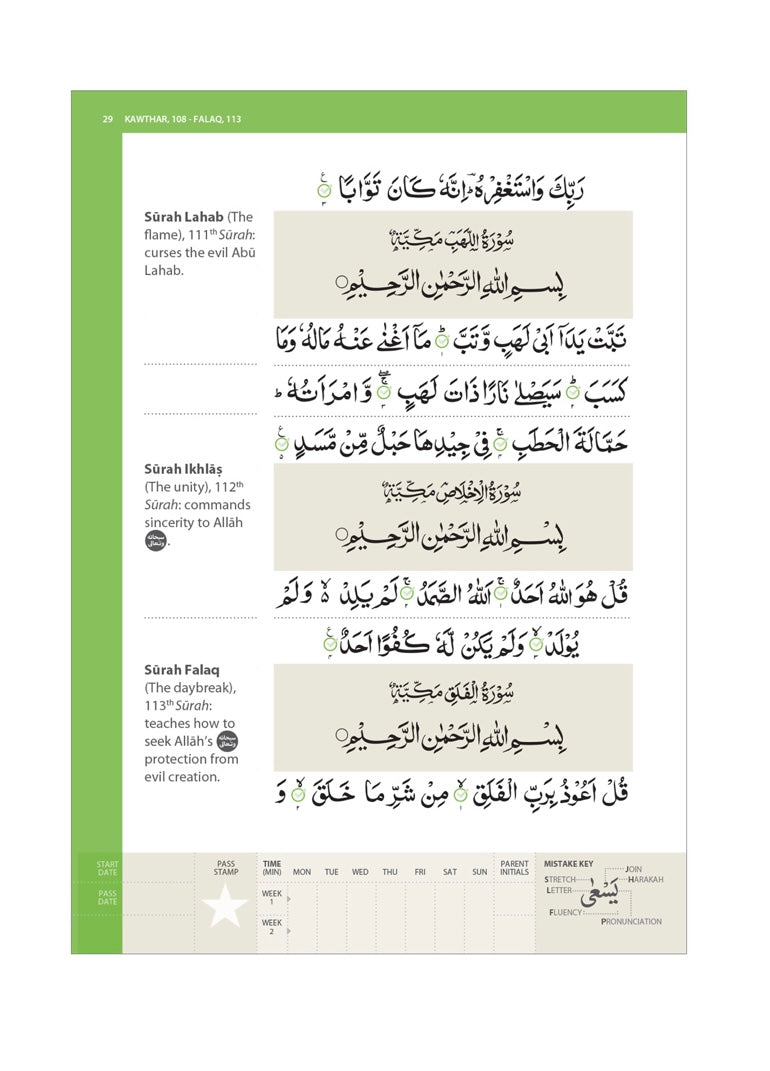 29 KAWTHAR, 108 - FALAQ, 113
رَبِّكَ وَاسْتَغْفِرْهُ ؕ اِنَّهٗ كَانَ تَوَّابًا
Sūrah Lahab (The
flame), 111th Sūrah:
curses the evil Abū
Lahab.
سُوْرَةُ اللَّهَبِ مَكِّيَّةٌ
بِسْمِ اللّٰهِ الرَّحْمٰنِ الرَّحِيْمِ
تَبَّتْ يَدَاۤ اَبِیْ لَهَبٍ وَّتَبَّ ؕ مَاۤ اَغْنٰی عَنْهُ مَالُهٗ وَمَا
كَسَبَ ؕ سَيَصْلٰی نَارًا ذَاتَ لَهَبٍ ۚ وَّامْرَاَتُهٗ ؕ
حَمَّالَةَ الْحَطَبِ ۚ فِیْ جِيْدِهَا حَبْلٌ مِّنْ مَّسَدٍ
Sūrah Ikhlāṣ
(The unity), 112th
Sūrah: commands
sincerity to Allāh
سبحانه وتعالى .
سُوْرَةُ الْاِخْلَاصِ مَكِّيَّةٌ
بِسْمِ اللّٰهِ الرَّحْمٰنِ الرَّحِيْمِ
قُلْ هُوَ اللّٰهُ اَحَدٌ ۚ اَللّٰهُ الصَّمَدُ ۚ لَمْ يَلِدْ ۙ وَلَمْ
يُوْلَدْ ۙ وَلَمْ يَكُنْ لَّهٗ كُفُوًا اَحَدٌ
Sūrah Falaq
(The daybreak),
113th Sūrah:
teaches how to
seek Allāh’s سبحانه وتعالى
protection from
evil creation.
سُوْرَةُ الْفَلَقِ مَكِّيَّةٌ
بِسْمِ اللّٰهِ الرَّحْمٰنِ الرَّحِيْمِ
قُلْ اَعُوْذُ بِرَبِّ الْفَلَقِ ۙ مِنْ شَرِّ مَا خَلَقَ ۙ وَ
START
DATE
PASS
DATE
PASS
STAMP
TIME
(MIN) MON TUE WED THU FRI SAT SUN
PARENT
INITIALS
WEEK
1
WEEK
2
MISTAKE KEY
JOIN
STRETCH
HARAKAH
LETTER
يَسْعٰى
FLUENCY
PRONUNCIATION